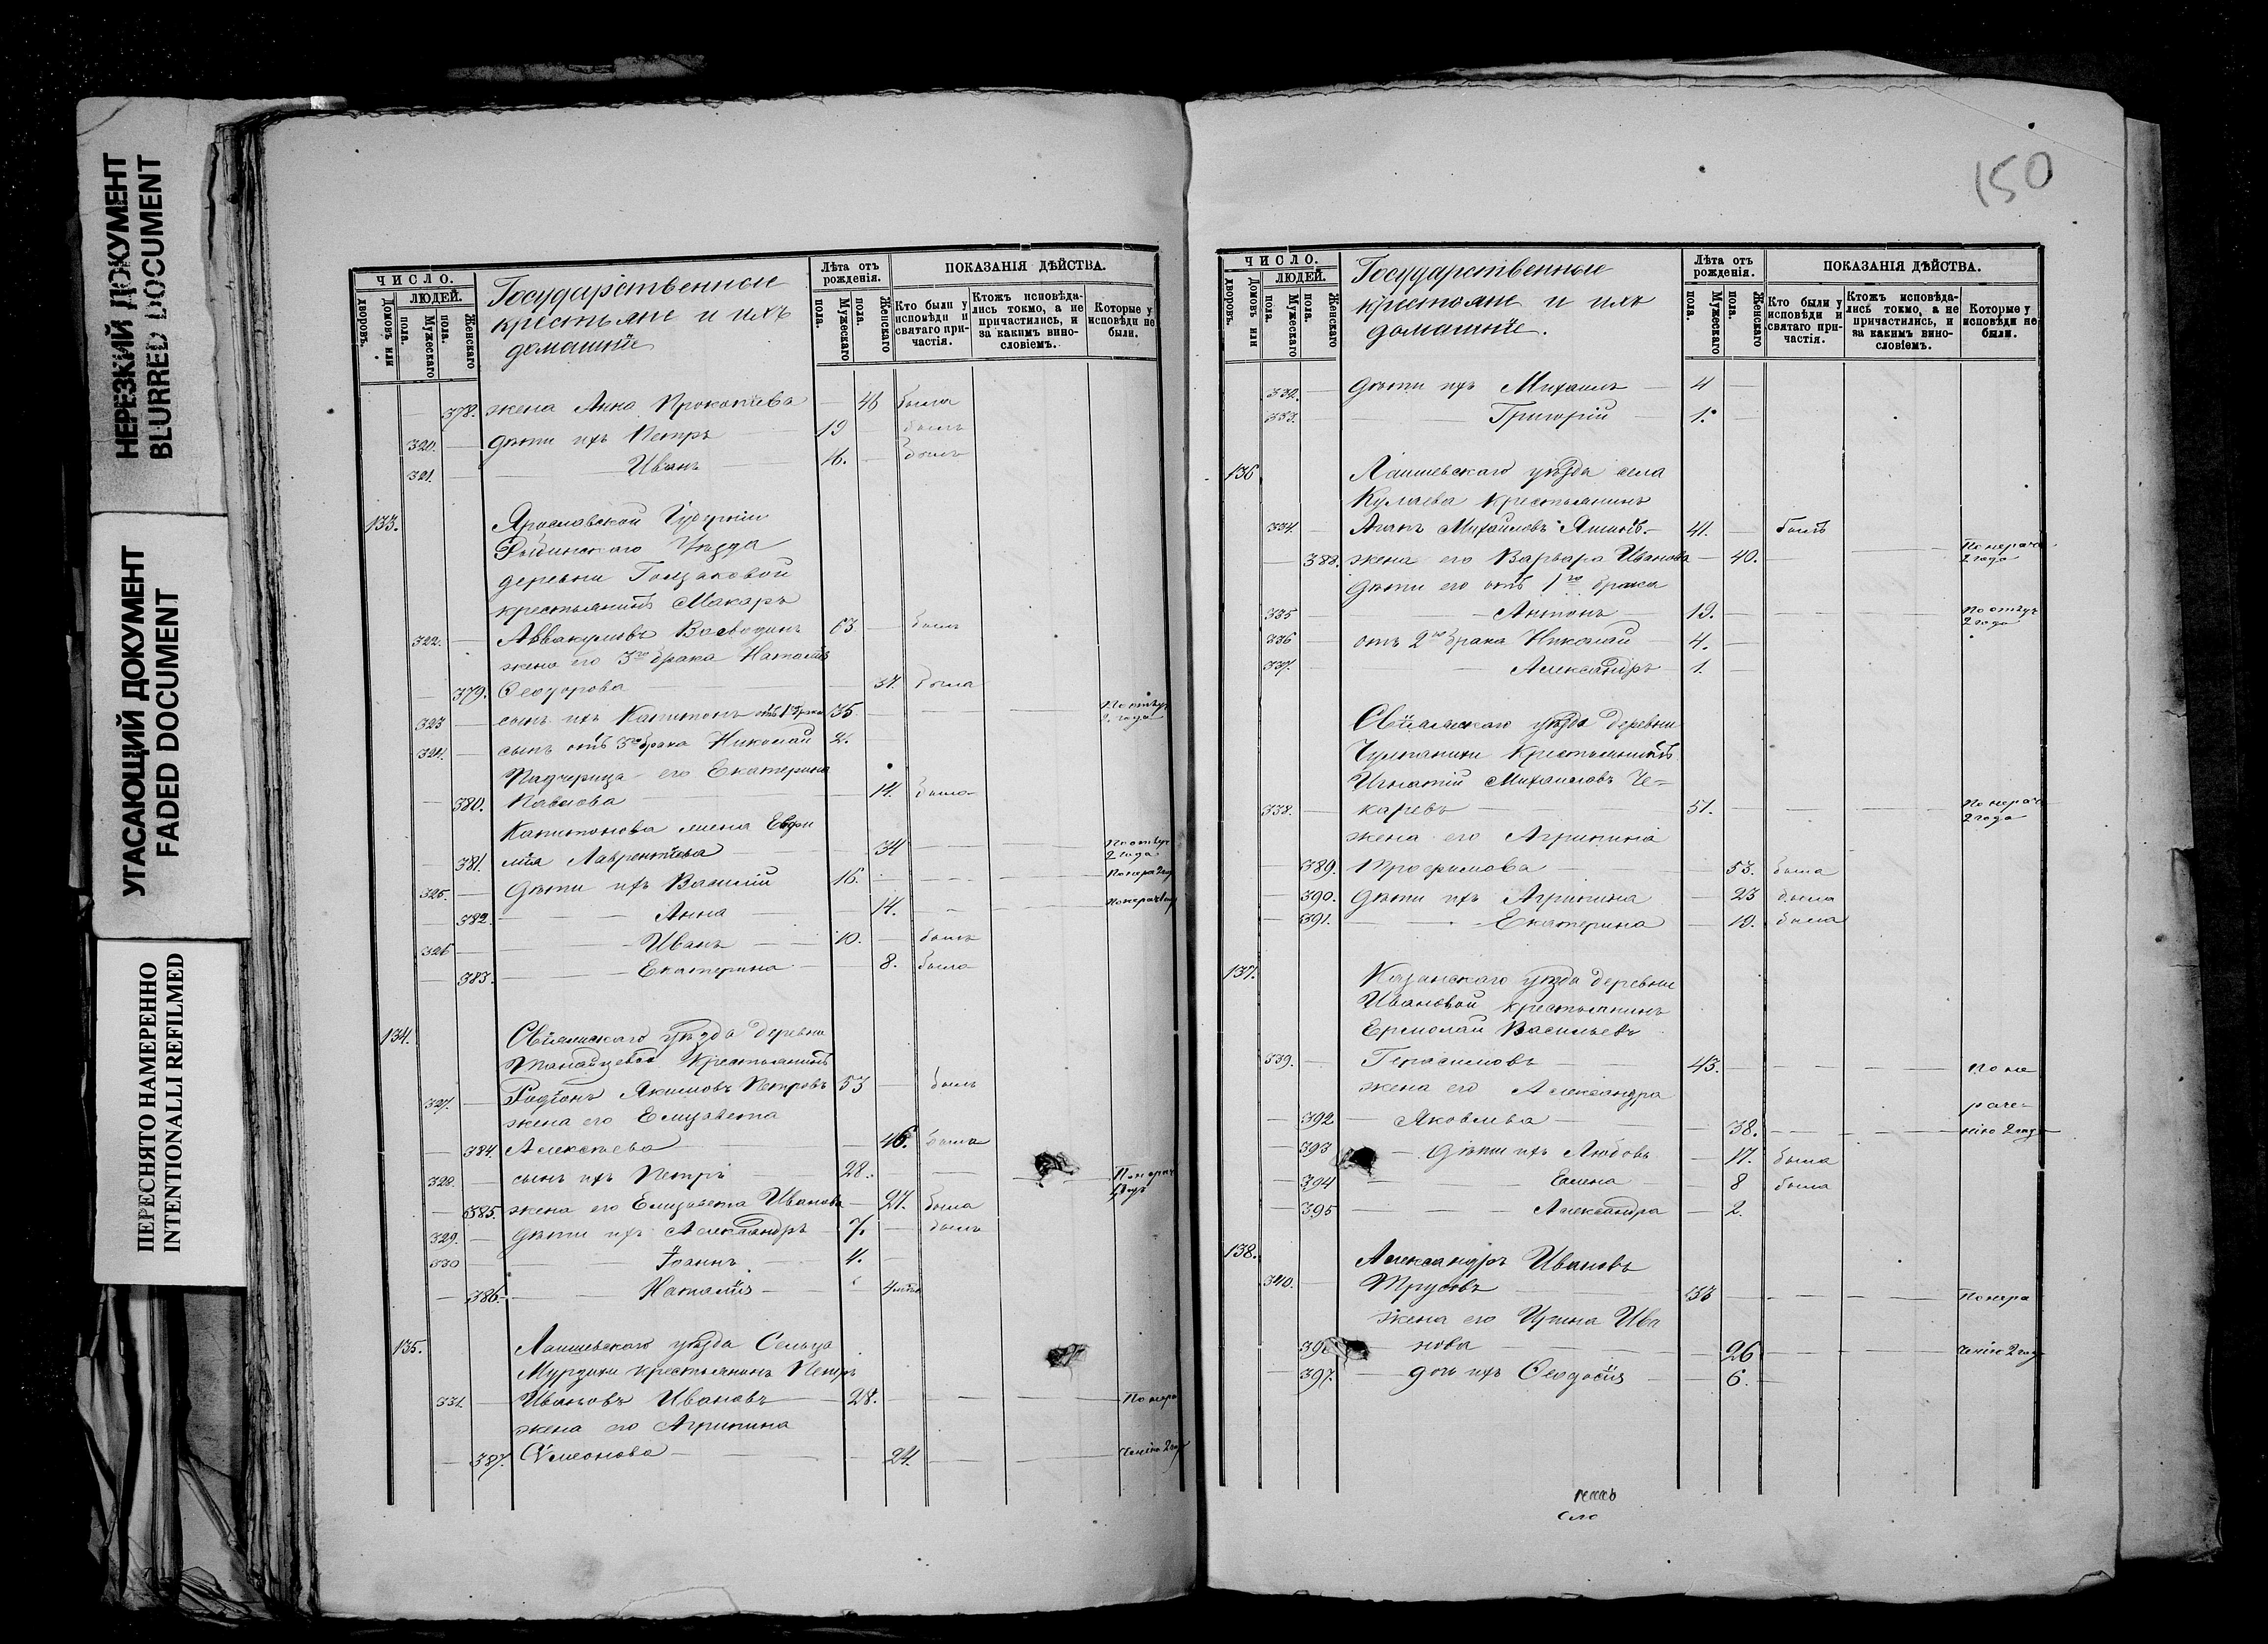 НЕРЕЗКИЙ ДОКУМЕНТ
BLURRED DOCUMENT
УГАСАЮЩИЙ ДОКУМЕНТ
FADED DOCUMENT
ПЕРЕСНЯТО НАМЕРЕННО
INTENTIONALLI REFILMED
ЧИСЛО.
ЛЮДЕЙ.
Домовъ или дворовъ.
Мужескаго пола.
Женскаго пола.
Государственные
крестьяне и ихъ
домашніе
Лѣта отъ рожденія.
Мужескаго пола.
Женскаго пола.
ПОКАЗАНІЯ ДѢЙСТВА.
Кто были у исповѣди и святаго причастія.
Ктожъ исповѣдались токмо, а не причастились, и за какимъ винословіемъ.
Которые у исповѣди не были.
378. жена Анна Прокопіева 46 была
320. дѣти ихъ Петръ 19 былъ
321. Иванъ 16. былъ
133. Ярославской Губерніи
Рыбинскаго Уѣзда
деревни
крестьянинъ Макаръ
322. Аввакумовъ 63. былъ
жена его 3го брака Наталія
379. Ѳеодорова 37. была
323 сынъ ихъ Капитонъ отъ 1 брака 35 По отлуч 2 года
324. сынъ отъ 3го брака Николай 2.
Падчерица его Екатерина
380. Павлова 14. была
Капитонова жена Евфи
381. мія Лаврентіева 34 По отлуч 2 года
325. дѣти ихъ Василій 16. По нера 2 год
382. Анна 14. По нерач
326 Иванъ 10. былъ
383. Екатерина 8. была
134. Свіяжскаго уѣзда деревни
крестьянинъ
327. Родіонъ Акимовъ Петровъ 53 былъ
жена его Елизавета
384 Алексѣева 46. была
328. сынъ ихъ Петръ 28. По нерач
385. жена его Елизавета Иванова 27. была
329. дѣти ихъ Александръ 7. былъ
330 Іоаннъ 4.
386. Наталія
135. Лаишевскаго уѣзда Сельца
крестьянинъ Петръ
331. Ивановъ Ивановъ 28. По нера
жена его Агрипина
387. Сѵмеонова 24. ченію 2 год
150
ЧИСЛО.
ЛЮДЕЙ.
Домовъ или дворовъ.
Мужескаго пола.
Женскаго пола.
Государственные
крестьяне и ихъ
домашніе.
Лѣта отъ рожденія.
Мужескаго пола.
Женскаго пола.
ПОКАЗАНІЯ ДѢЙСТВА.
Кто были у исповѣди и святаго причастія.
Ктожъ исповѣдались токмо, а не причастились, и за какимъ винословіемъ.
Которые у исповѣди не были.
332. дѣти ихъ Михаилъ 4
333. Григорій 1.
136 Лаишевскаго уѣзда села
Кулаева крестьянинъ
334. Михайловъ 41. былъ
388. жена его Варвара Иванова 40. По нерач 2 года
дѣти его отъ 1го брака
335 Антонъ 19. По отлуч 2 года
336 отъ 2го брака Николай 4.
337. Александръ 1.
Свіяжскаго уѣзда деревни
крестьянинъ
Игнатій Михаиловъ Че-
338. каревъ 51. По нерач 2 года
жена его Агрипина
389. Трофимова 53. была
390. дѣти ихъ Агрипина 23 была
391. Екатерина 19. была
137. Казанскаго уѣзда деревни
Ивановой крестьянинъ
Ермолай Васильевъ
339. Герасимовъ 43. По не
жена его Александра раче-
392 Яковлева 38. нію 2 года
393 дѣти ихъ Любовь 17. была
394 Елена 8 была
395 Александра 2.
138. Александръ Ивановъ
340. Трусовъ 33 По нера
жена его Ива
396 нова 26 ченію 2 год
397. дочь ихъ Ѳеодосія 6.